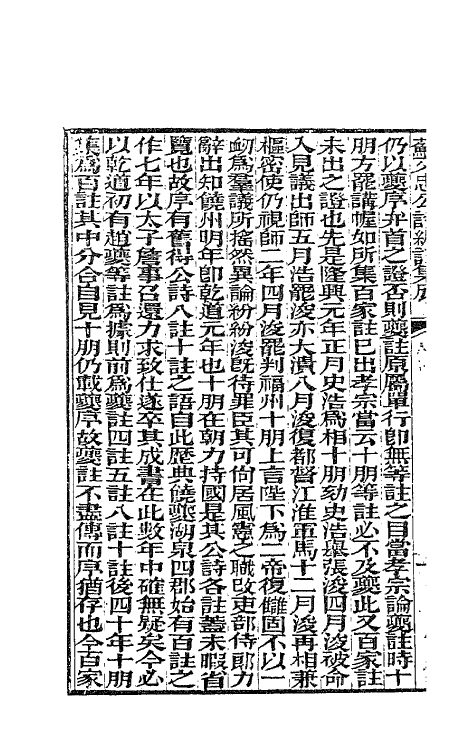 蘇文忠公詩編註集成
仍以夔序弁首之證否則夔註原屬單行卽無等註之目當孝宗論夔註時十
朋方罷講幄如所集百家註已出孝宗當云十朋等註必不及夔此又百家註
未出之證也先是隆興元年正月史浩爲相十朋劾史浩舉張浚四月浚被命
入見議出師五月浩罷浚亦大潰八月浚復都督江淮軍馬十二月浚再相兼
樞密使仍視師二年四月浚罷判福州十朋上言陛下爲二帝復讎固不以一
衂爲羣議所搖然異論紛紛浚旣待罪臣其可尙居風憲之職改吏部侍郎力
辭出知饒州明年卽乾道元年也十朋在朝力持國是其公詩各註蓋未暇省
覽也故序有舊得公詩八註十註之語自此歷典饒夔湖泉四郡始有百註之
作七年以太子詹事召還力求致仕遂卒其成書在此數年中確無疑矣今必
以乾道初有趙夔等註爲據則前爲夔註四註五註八註十註後四十年十朋
集爲百註其中分合自見十朋仍載夔序故夔註不盡傳而序猶存也今百家